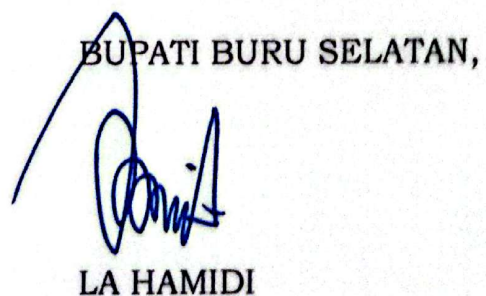 BUPATI BURU SELATAN,
LA HAMIDI